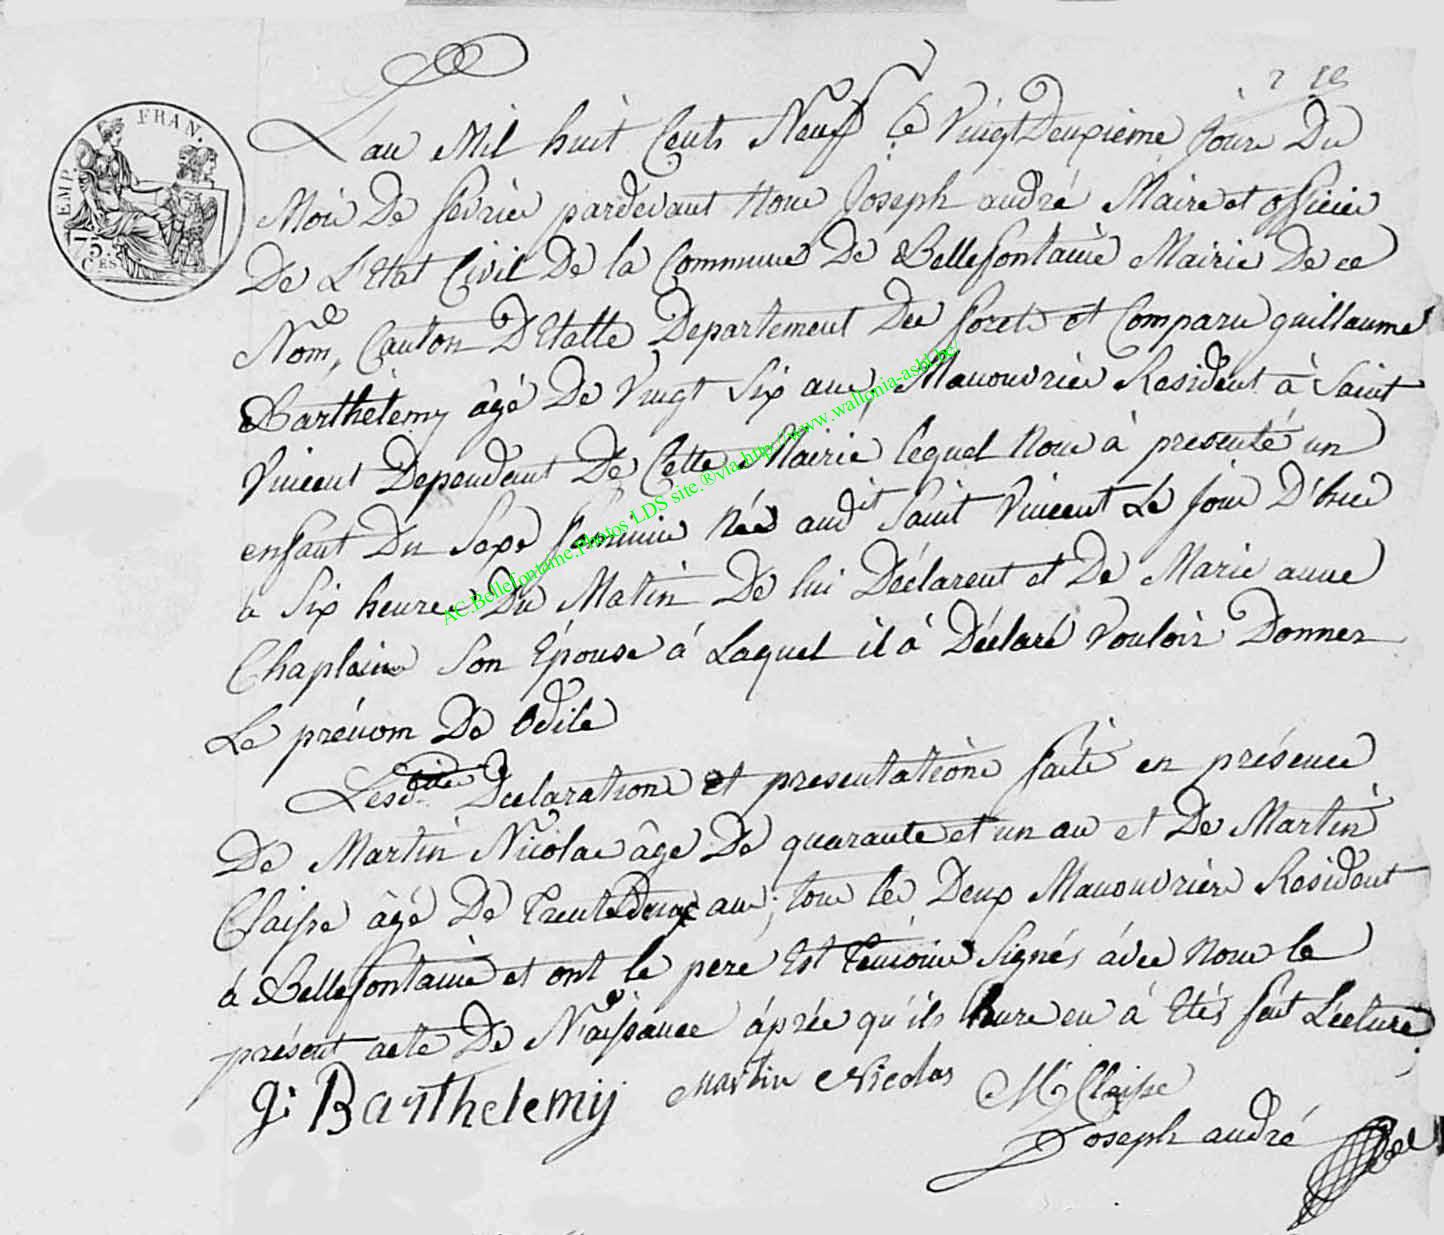 2 18
EMP. FRAN.
75.
CES.
L'an Mil huit Cents Neuf Le Vingt Deuxième Jour Du
Mois De fevrier pardevant Nous Joseph andré Maire et officier
De L'Etat Civil De la Commune De Bellefontaine Mairie De ce
Nom, Canton D'Etalle Departement Des forets et Comparu guillaume
Barthélemy âgé De Vingt Six ans, Manouvrier Resident à Saint
Vincent Dependant De Cette Mairie lequel Nous à presenté un
enfant Du Sexe feminin Née audit Saint Vincent Le Jour D'hier
a Six heures Du Matin De lui Déclarent et De Marie anne
Chaplain Son Épouse á Laquel il á Déclaré Vouloir Donner
Le prénom De Odile
Lesdite Declarations et presentations faite en présence
De Martin Nicolas âge De quarante et un an et De Martin
Claisse âgé De Trente Deux ans; tous les Deux Manouvriers Résident
a Bellefontaine et ont le pere Et Temoins Signés ávec Nous le
présent acte De Naissance áprés qu'ils Leure en á Etés fait Lecture,
g: Barthelemij Martin Nicolas M Claisse
Joseph andré
AC.Bellefontaine.Photos LDS site.®via.http://www.wallonia-asbl.be/